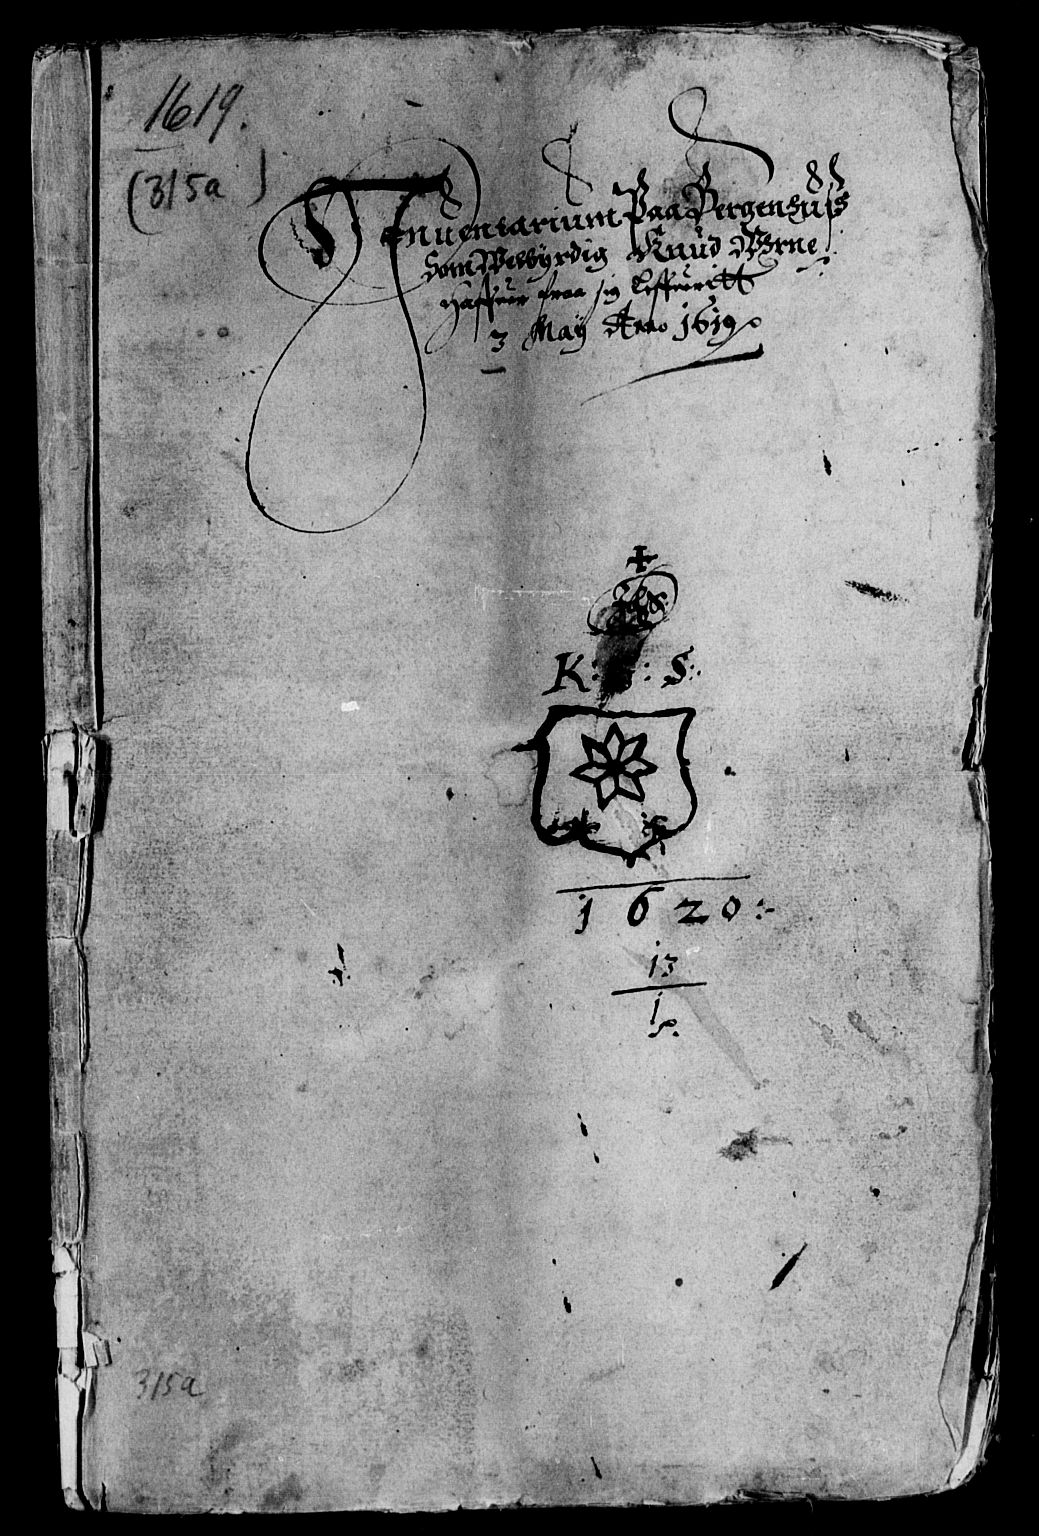 1619.
(315a)
Inuentarium Paa Bergenhuus
Som Welbyrdig Knud Vrne
Haffuer fraa sig Leffueritt
3 Maij Anno 1619
K: : S:
1620:
13
1
315a